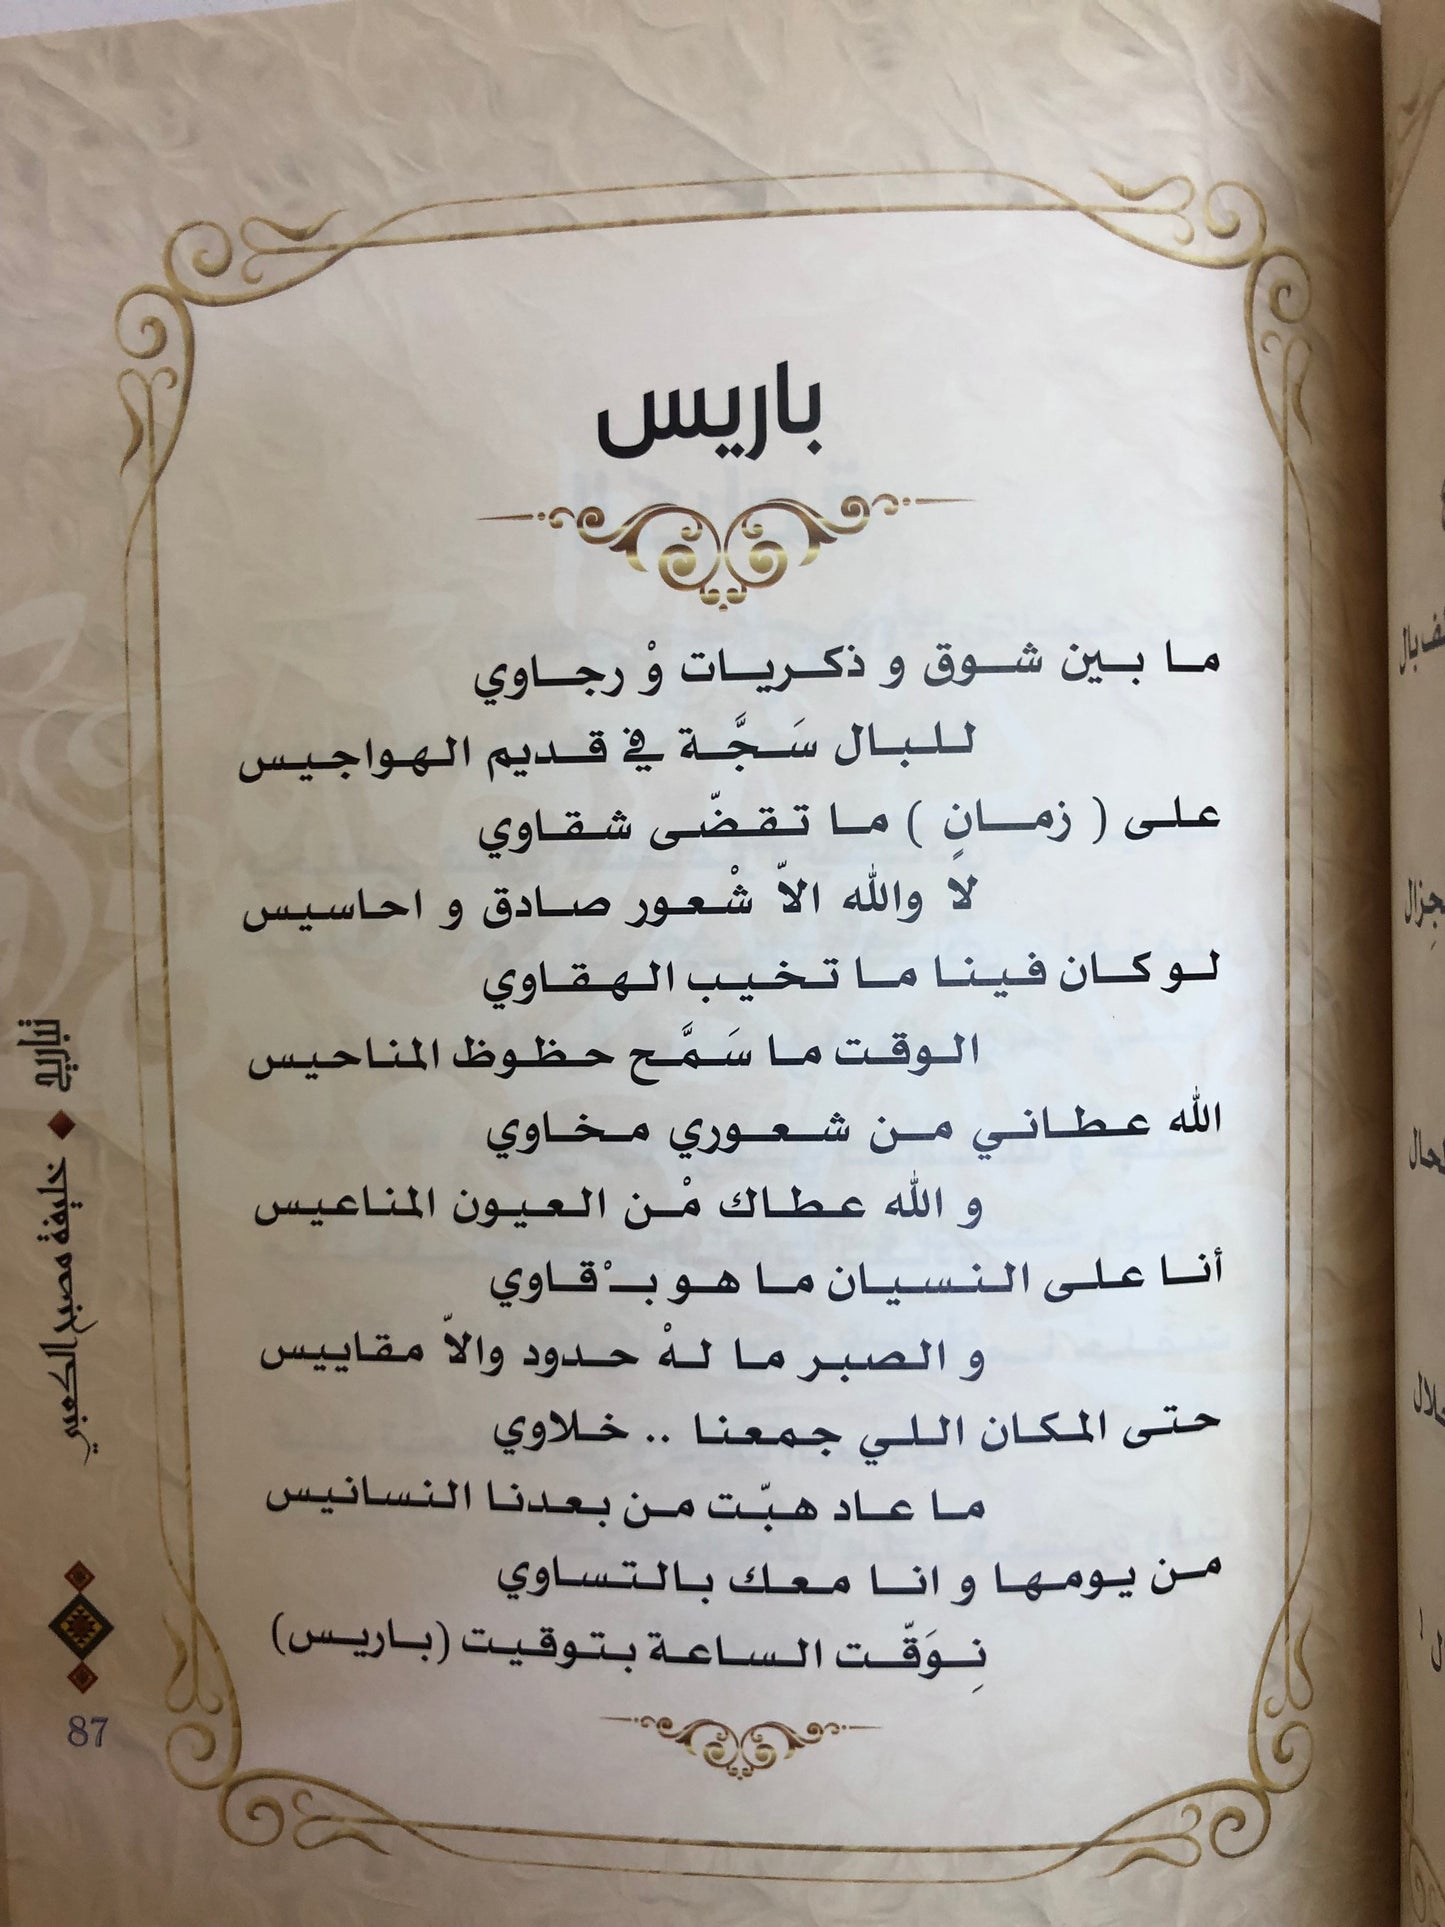 باريس
ما بين شوق و ذكريات وْ رجاوي
للبال سَجَّة في قديم الهواجيس
على ( زمانٍ ) ما تقضّى شقاوي
لا والله الاّ شْعور صادق و احاسيس
لو كان فينا ما تخيب الهقاوي
الوقت ما سَمَّح حظوظ المناحيس
الله عطاني من شعوري مخاوي
و الله عطاك مْن العيون المناعيس
أنا على النسيان ما هو بـْقاوي
و الصبر ما لهْ حدود والاّ مقاييس
حتى المكان اللي جمعنا .. خلاوي
ما عاد هبّت من بعدنا النسانيس
من يومها و انا معك بالتساوي
نِوَقّت الساعة بتوقيت (باريس)
خليفة مصبح الكعبي
87
بال
جِزال
لحال